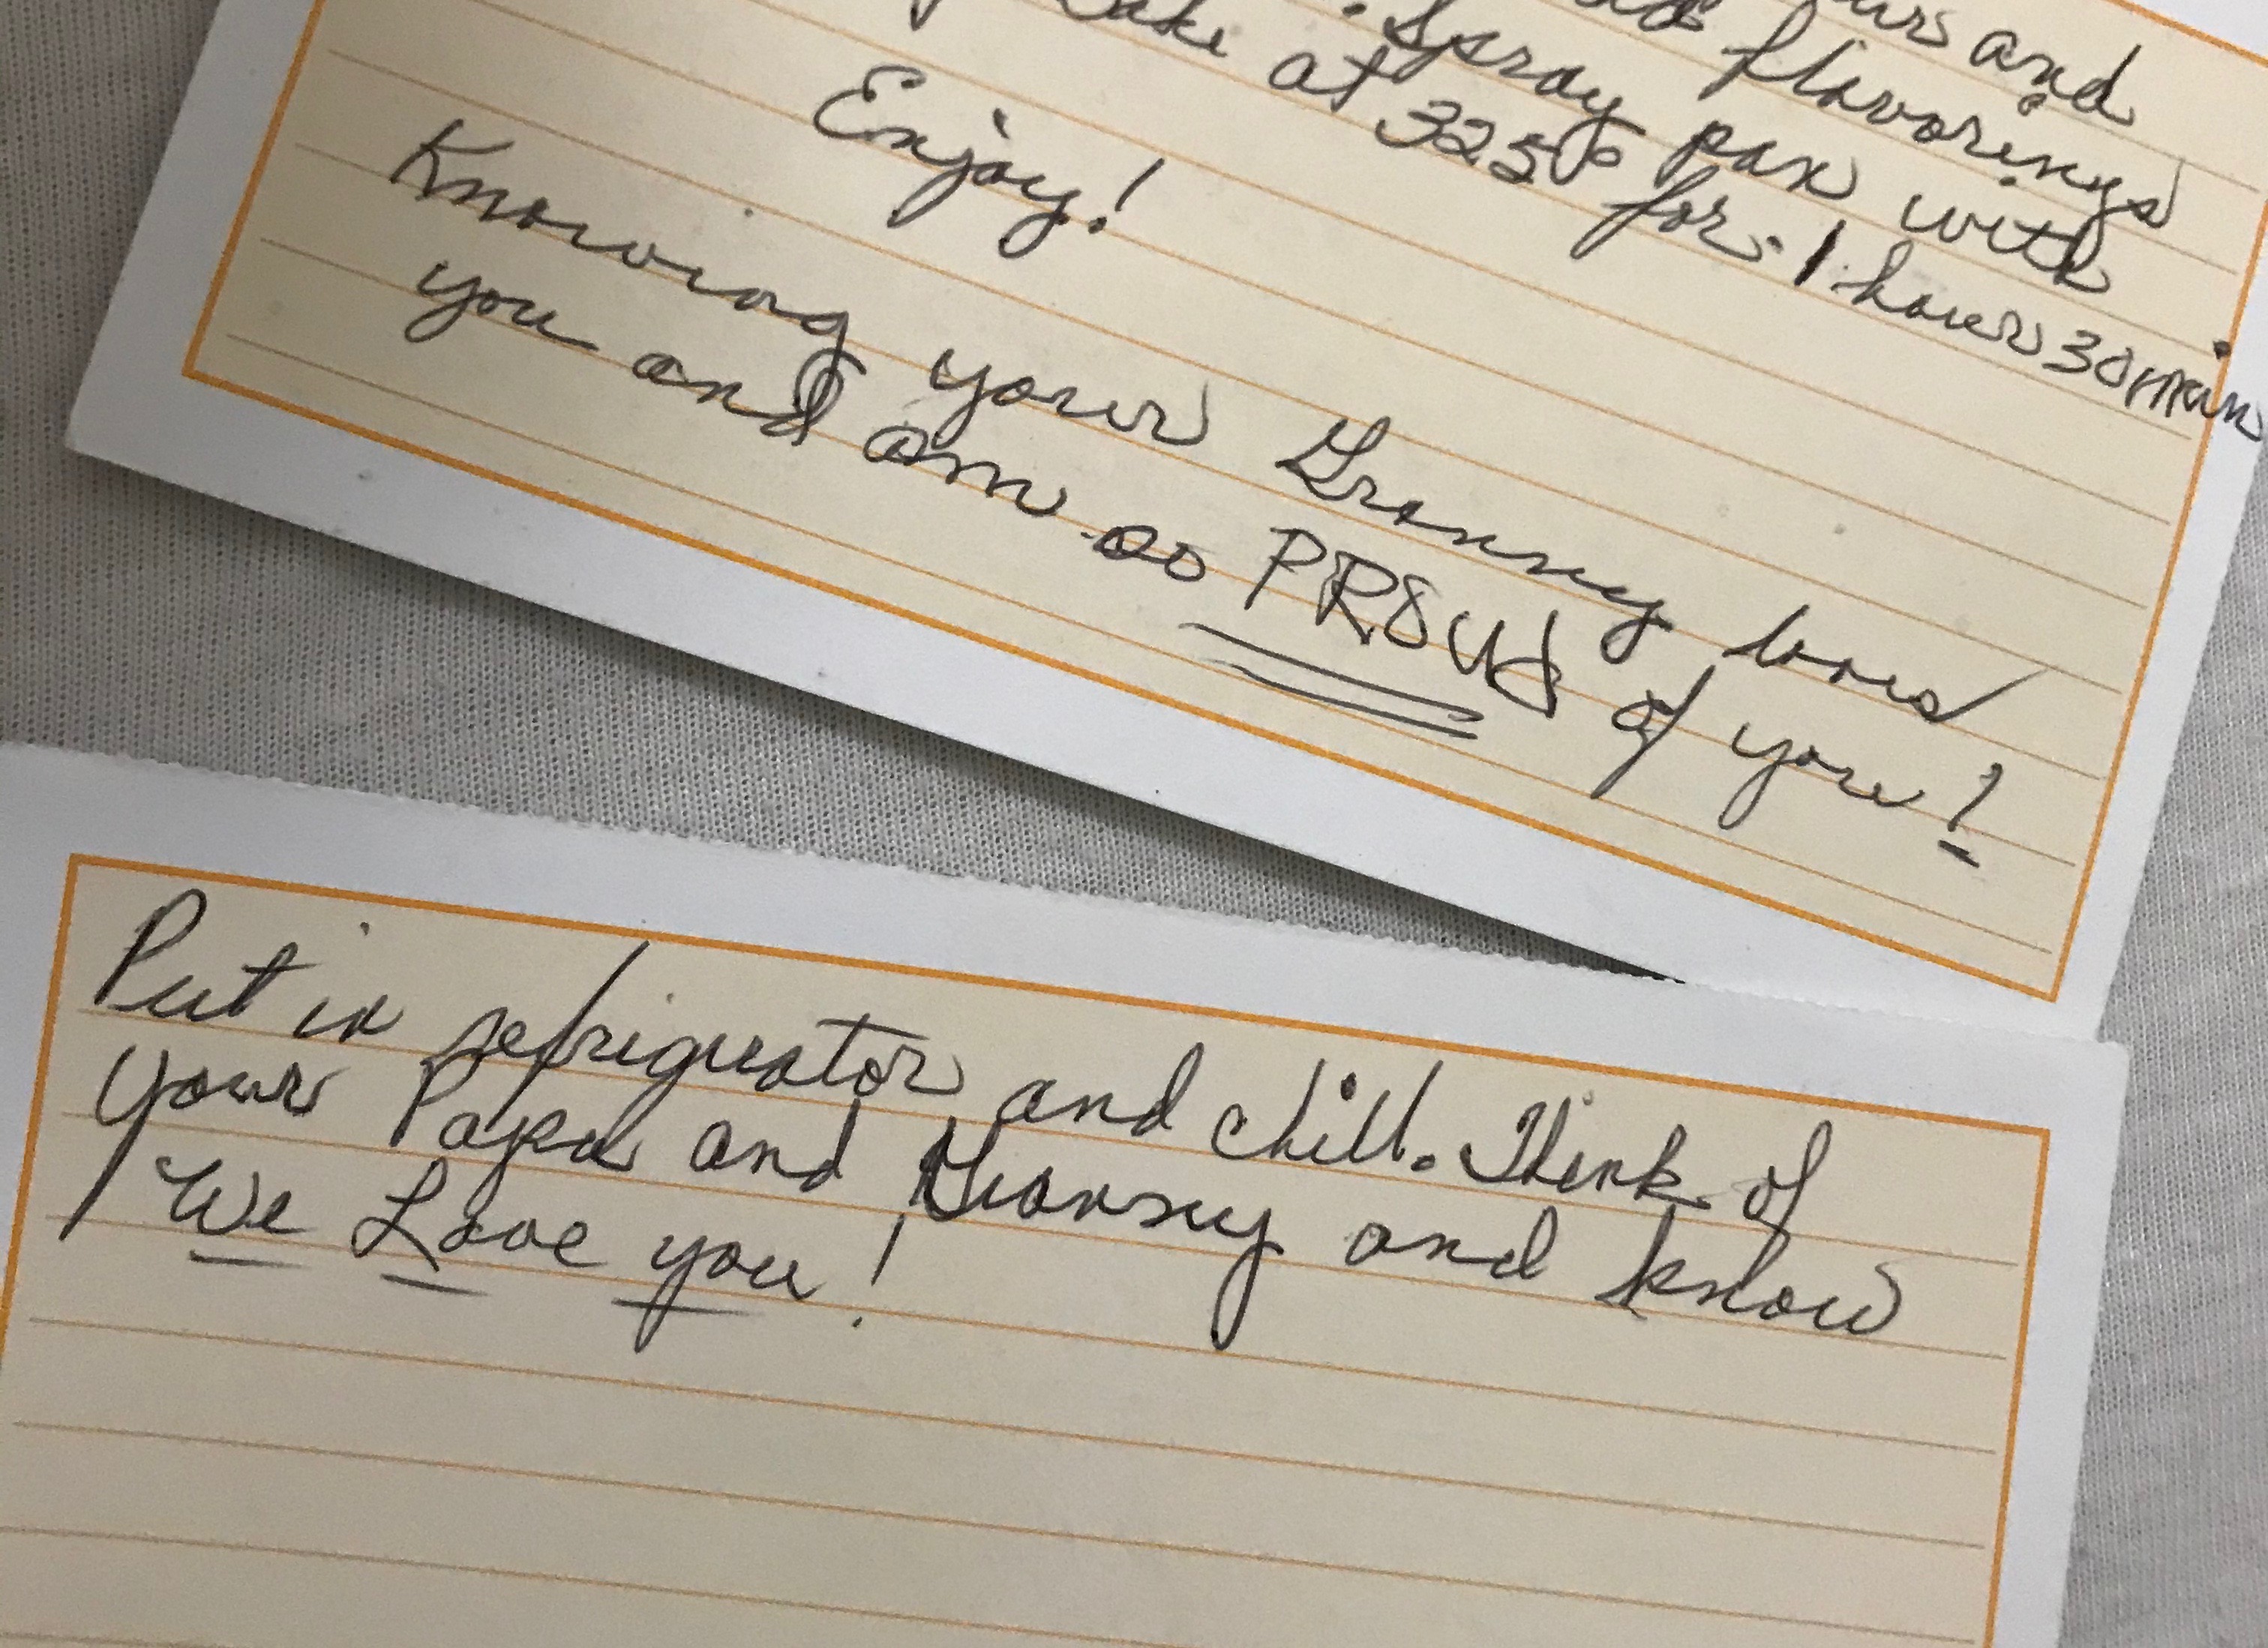 and
flavorings
. Spray pan with
Bake at 325° for 1 hour 30 min.
Enjoy!
Knowing your Granny loves
you and am so PROUd of you!
Put in refrigerator and chill. Think of
your Papa and Granny and know
We Love you!